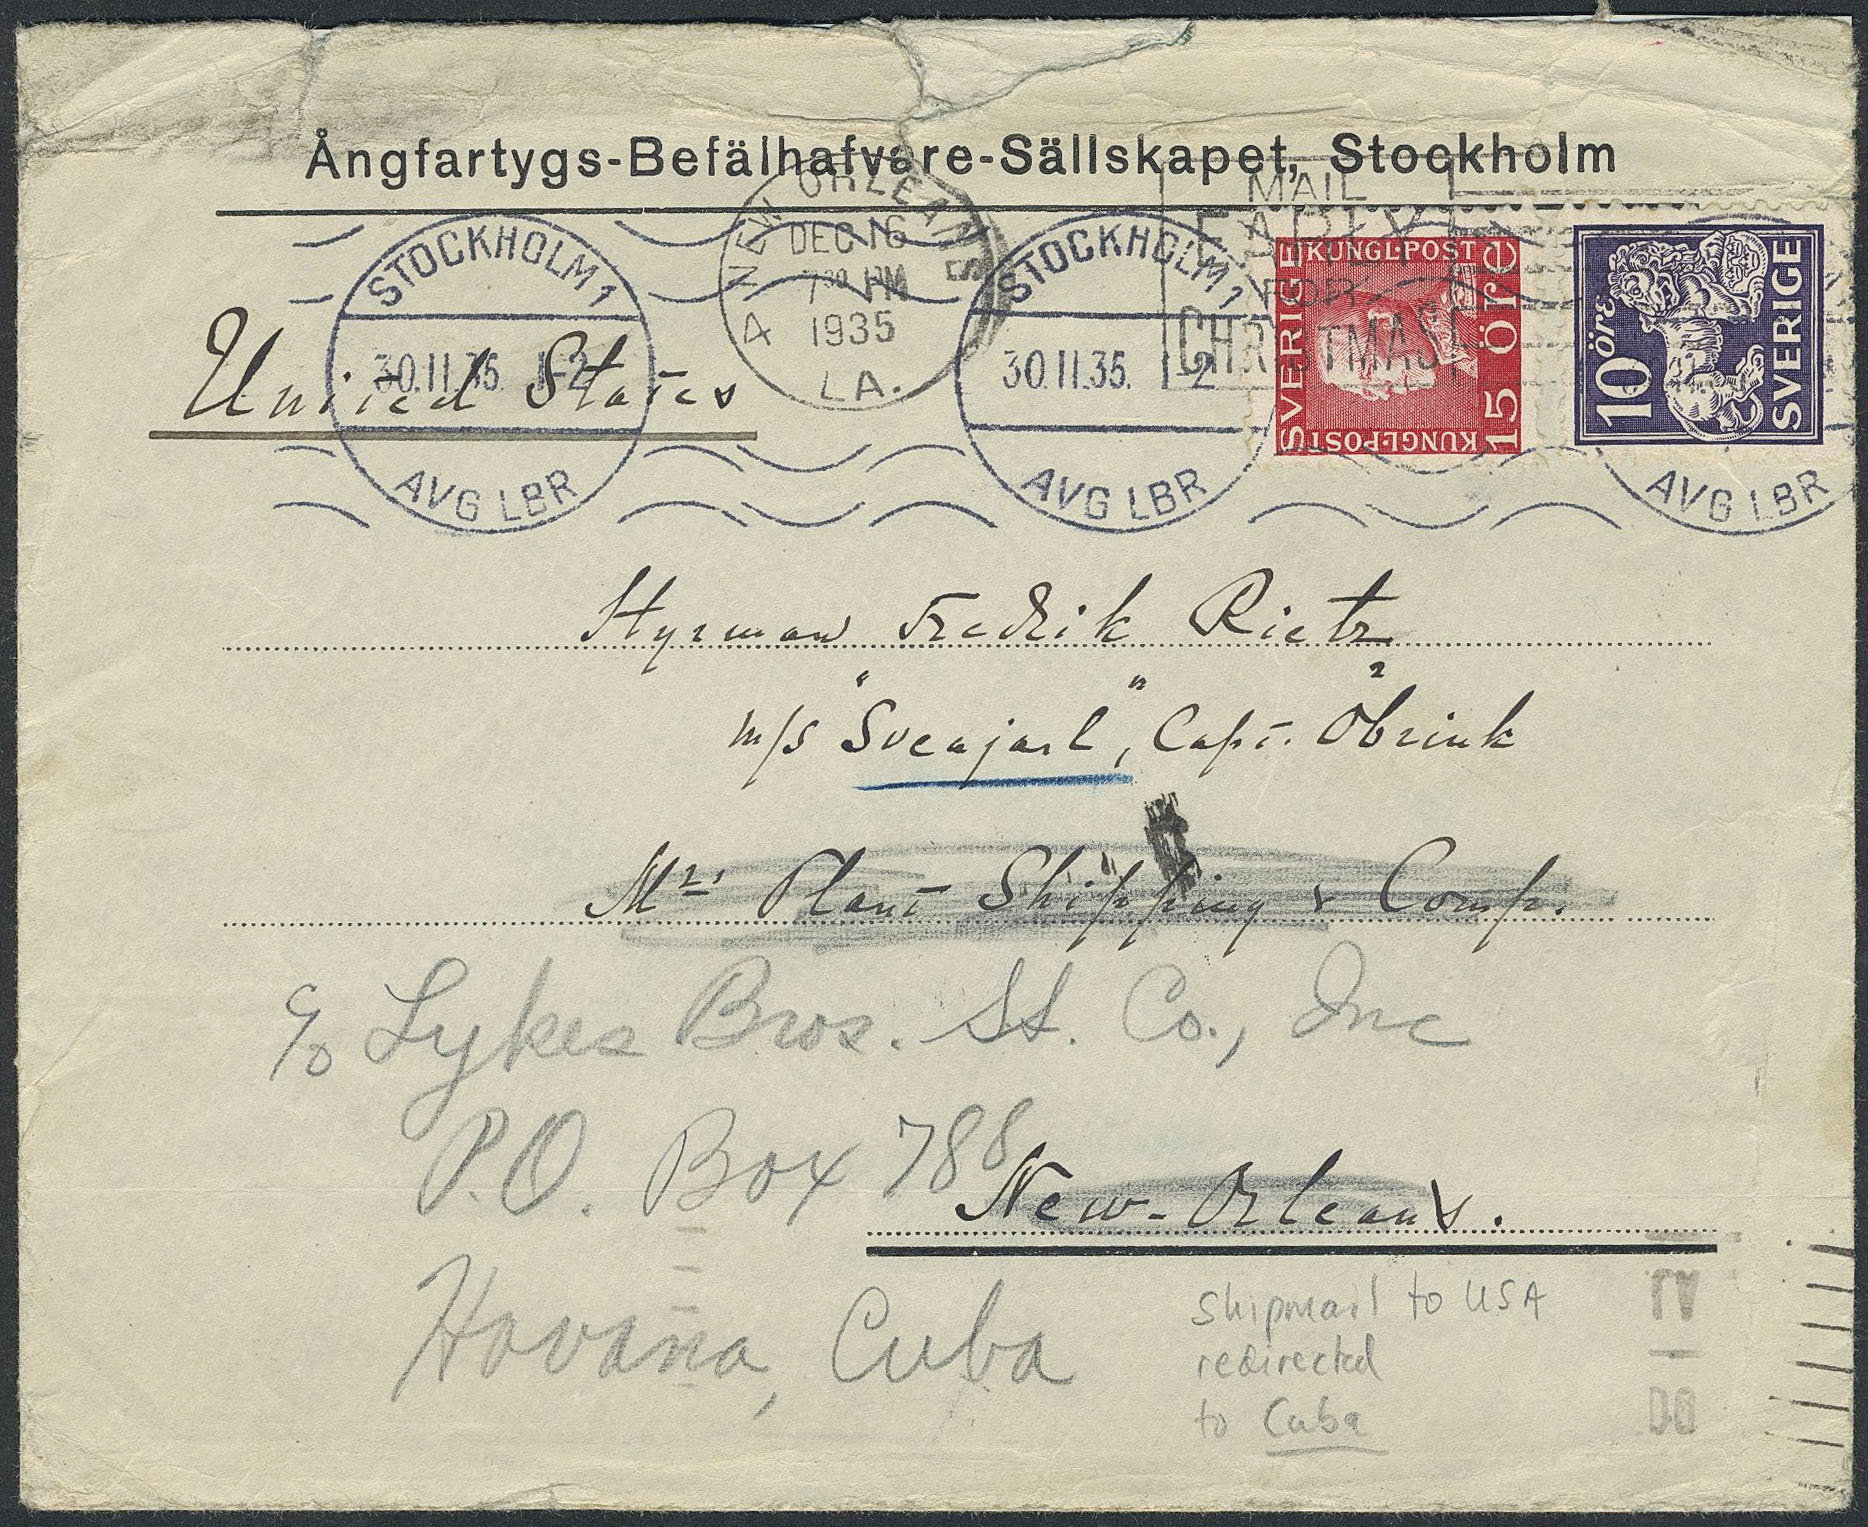 Ångfartygs-Befälhafvare-Sällskapet, Stockholm
NEW ORLEANS
DEC 16
7 30 PM
1935
LA.
A
MAIL
EARLY
FOR
CHRISTMAS
STOCKHOLM 1
30.11.35. 1-2
AVG LBR
STOCKHOLM 1
30.11.35. 1-2
AVG LBR
AVG LBR
KUNGL·POST
SVERIGE
15 öre
KUNGL·POST
10 öre
SVERIGE
United States
Styrman Fredrik Rietz
m/s "Sveajarl", Capt. Öbrink
Mrs. Plant Shipping & Comp.
c/o Lykes Bros. SS. Co., Inc
P.O. Box 788
New-Orleans.
Havana, Cuba
Shipmail to USA
redirected
to Cuba